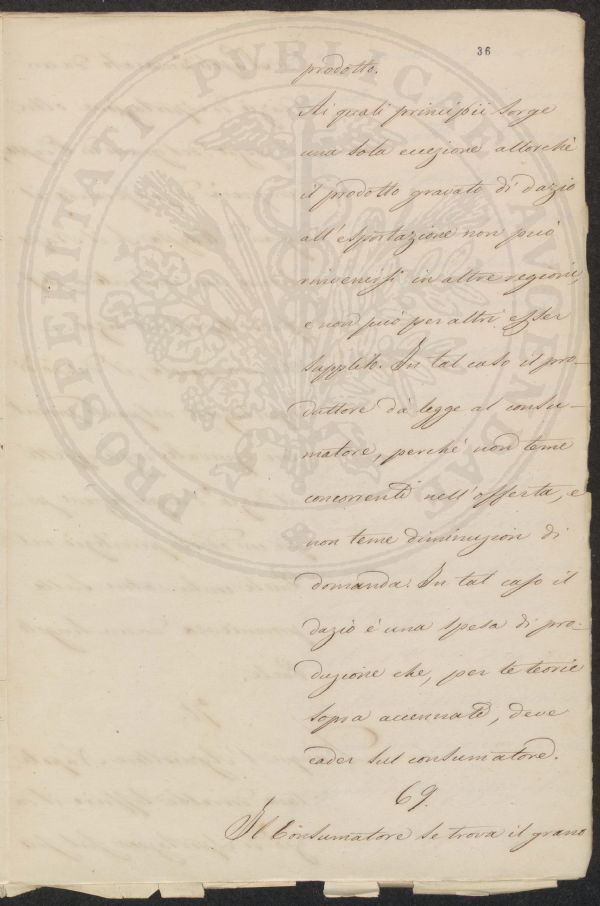 36
prodotto.
Ai quali principii sorge
una sola eccezione allorchè
il prodotto gravato di dazio
all'esportazione non può
rinvenirsi in altre regioni,
e non può per altri esser
supplito. In tal caso il pro-
duttore dà legge al consu-
matore, perchè non teme
concorrenti nell'offerta, e
non teme diminuzion di
domanda. In tal caso il
dazio è una spesa di pro-
duzione che, per le teorie
sopra accennate, deve
cader sul consumatore.
69.
Il Consumatore se trova il grano
PROSPERITATI PUBLICAE AUGENDAE